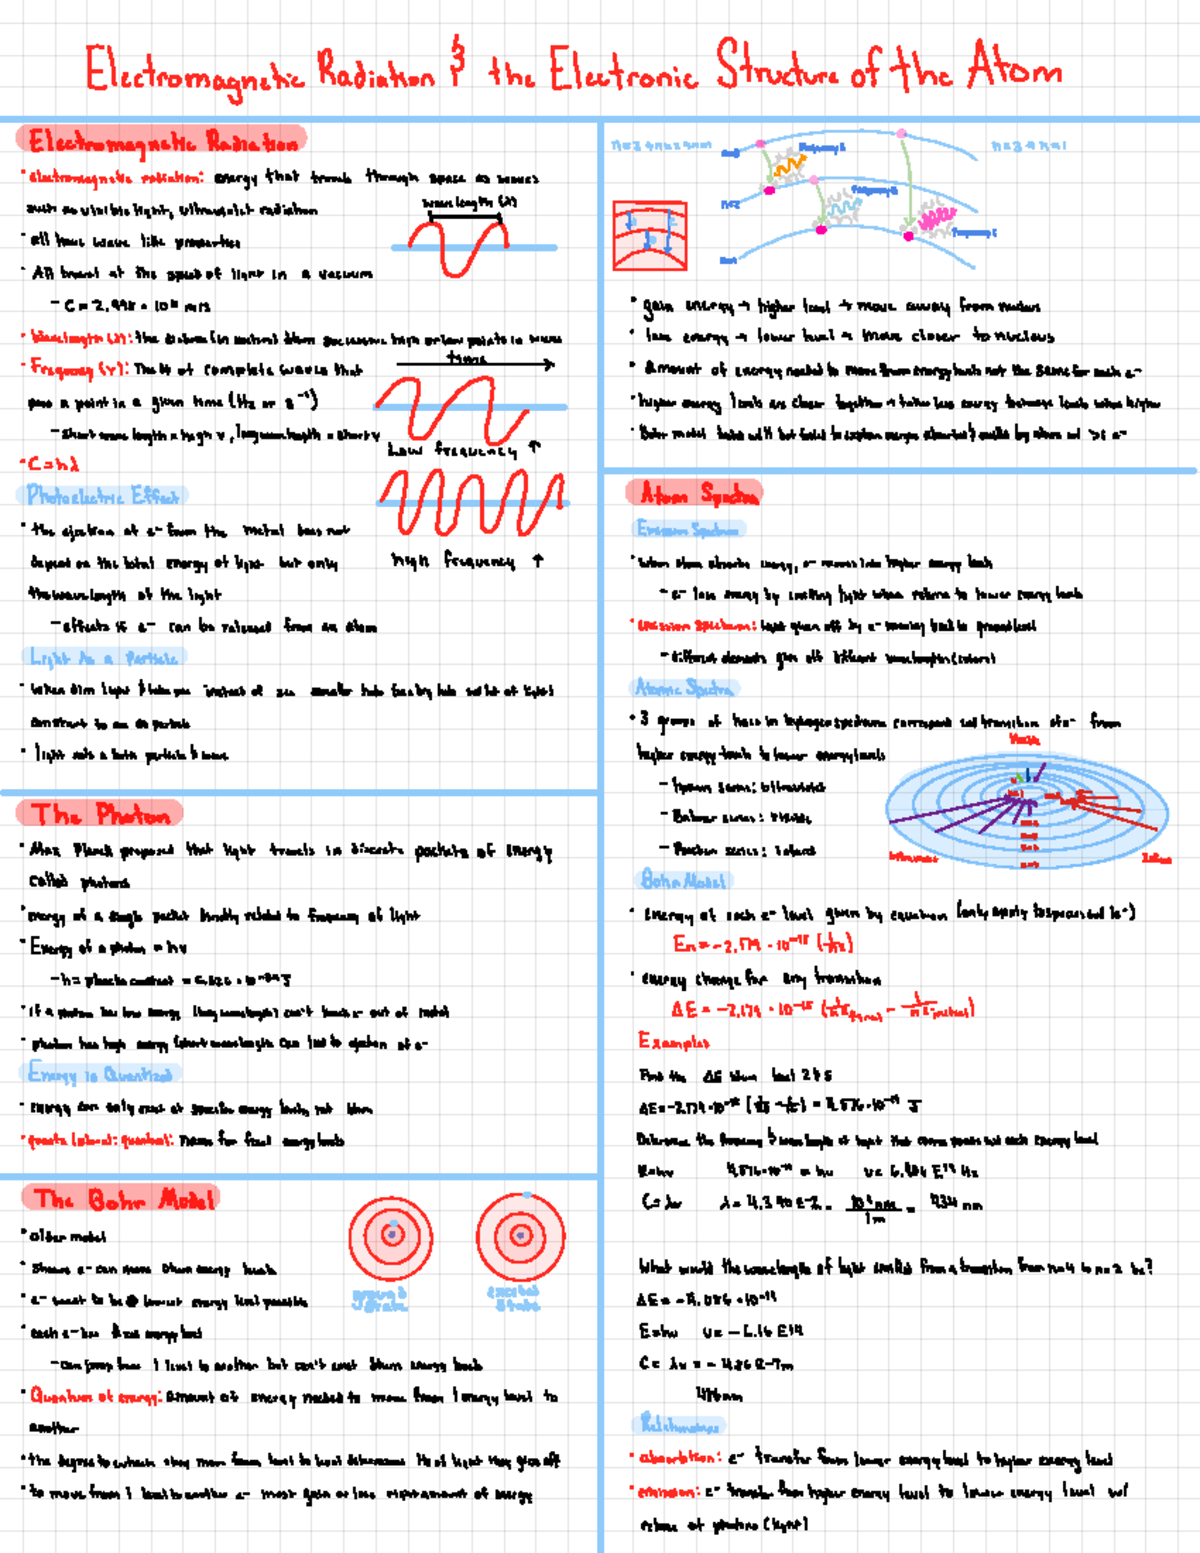 Electromagnetic Radiation & the Electronic Structure of the Atom
Electromagnetic Radiation
• electromagnetic radiation: energy that travels through space as waves
such as visible light, ultraviolet radiation
• all have wave like properties
• All travel at the speed of light in a vacuum
- C = 2.998 • 10⁸ m/s
wavelength (λ)
• Wavelength (λ): the distance (in meters) btwn successive high or low points in wave
• Frequency (v): The # of complete waves that
pass a point in a given time (Hz or s⁻¹)
- short wave length = high v, long wavelength = short v
• C = λ
time
Low frequency ↑
high frequency ↑
Photoelectric Effect
• the ejection of e⁻ from the metal does not
depend on the total energy of light but only
the wavelength of the light
- effects if e⁻ can be released from an atom
Light As a Particle
• When dim light instead of
constant to an particle
• light acts a both particle & wave
The Photon
• Max Planck proposed that light travels in discrete packets of energy
called photons
• energy of a single packet directly related to frequency of light
• Energy of a photon = hv
- h = planck's constant = 6.626 • 10⁻³⁴ J
• if a photon has low energy (long wavelength) can't knock e⁻ out of metal
• photon has high energy (short wavelength can lead to ejection of e⁻
Energy is Quantized
• energy can only exist at specific energy levels, not btwn
• quanta (plural: quantum): name for fixed energy levels
The Bohr Model
• older model
• Shows e⁻ can move btwn energy levels
• e⁻ want to be @ lowest energy level possible
• each e⁻ has fixed energy level
- can jump from 1 level to another but can't exist btwn energy levels
• Quantum of energy: amount of energy needed to move from 1 energy level to
another
• the degree to which they move from level to level determines the of light they give off
• to move from 1 level to another e⁻ must gain or lose right amount of energy
ground state
excited state
n=3
n=2
n=1
n=3→n=1
Frequency B
Frequency C
• gain energy → higher level → move away from nucleus
• lose energy → lower level → move closer to nucleus
• Amount of energy needed to move from energy levels not the same for each e⁻
• higher energy levels are closer together → takes less energy between levels when higher
• Bohr model but failed to explain energies absorbed & emitted by atoms w/ >1 e⁻
Atom Spectra
Emission Spectrum
• When atom absorbs energy, e⁻ moves into higher energy levels
- e⁻ lose energy by emitting light when returns to lower energy levels
• emission spectrum: light given off by e⁻ moving back to ground level
- different elements give off different wavelengths (colors)
Atomic Spectra
• 3 groups of lines in hydrogen spectrum correspond to transition of e⁻ from
higher energy levels to lower energy levels
- Lyman series: ultraviolet
- Balmer series: visible
- Paschen series: infrared
Visible
Ultraviolet
Bohr Model
• Energy of each e⁻ level given by equation (only apply to species w/ 1e⁻)
En = -2.179 • 10⁻¹⁸ (1/n²)
• energy change for any transition
ΔE = -2.179 • 10⁻¹⁸ (1/n²final - 1/n²initial)
Examples
Find the ΔE btwn level 2 & 5
Determine the frequency & wavelength of light that corresponds w/ each energy level
E = hv
C = λv λ = 4.340 E-7 • 10⁹ nm / 1 m = 434 nm
What would the wavelength of light emitted from a transition from n=4 to n=2 be?
ΔE = -4.086 • 10⁻¹⁹
E = hv v = -6.16 E14
C = λv = -4.86 E-7m
486 nm
Relationships
• absorbtion: e⁻ transfer from lower energy level to higher energy level
• emission: e⁻ transfer from higher energy level to lower energy level w/
release of photons (light)